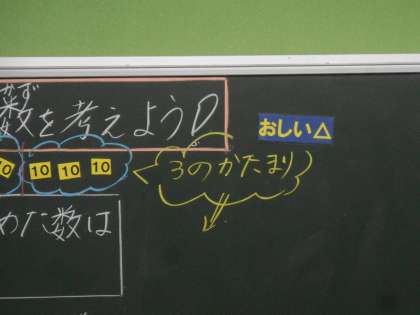 かず
数を考えようD
おしい△
10 10 10 10
3のかたまり
めた数は